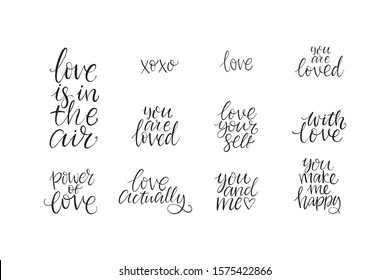 love
is in
the
air
xoxo
love
you
are
loved
you
are
loved
love
your
self
with
love
power
of
love
love
actually
you
and
me♡
you
make
me
happy
shutterstock.com · 1575422866